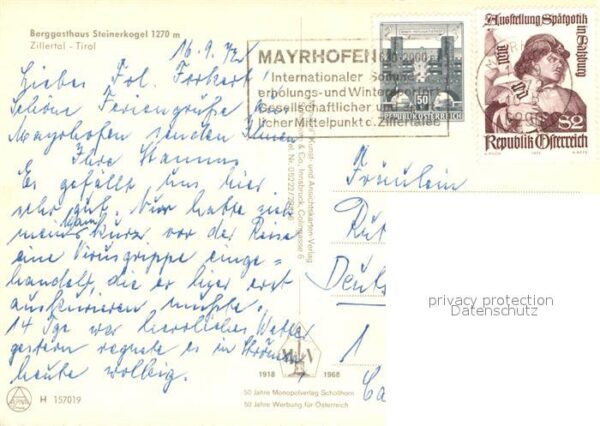 Berggasthaus Steinerkogel 1270 m
Zillertal - Tirol
16. 9. 72
Liebes Frl. Forkert!
Schöne Feriengrüße von
Mayrhofen senden Ihnen
Ihre
Es gefällt uns hier
sehr gut. Nur hatte sich
mein kurz vor der Reise
eine Virusgrippe einge-
handelt, die er hier erst
auskurieren mußte.
14 Tge war herrliches Wetter
gestern regnete es in Strömen
heute wolkig.
MAYRHOFEN
630-2000 m
Internationaler Sommer
erholungs- und Wintersportort
Gesellschaftlicher u
licher Mittelpunkt d. Zillertales
50
REPUBLIK ÖSTERREICH
Ausstellung Spätgotik in Salzburg
S2
Republik Österreich
Kunst- und Ansichtskarten-Verlag
& Co., Innsbruck,
Fräulein
Deuts
1
privacy protection
Datenschutz
1918 1968
50 Jahre Monopolverlag Schöllhorn
50 Jahre Werbung für Österreich
H 157019